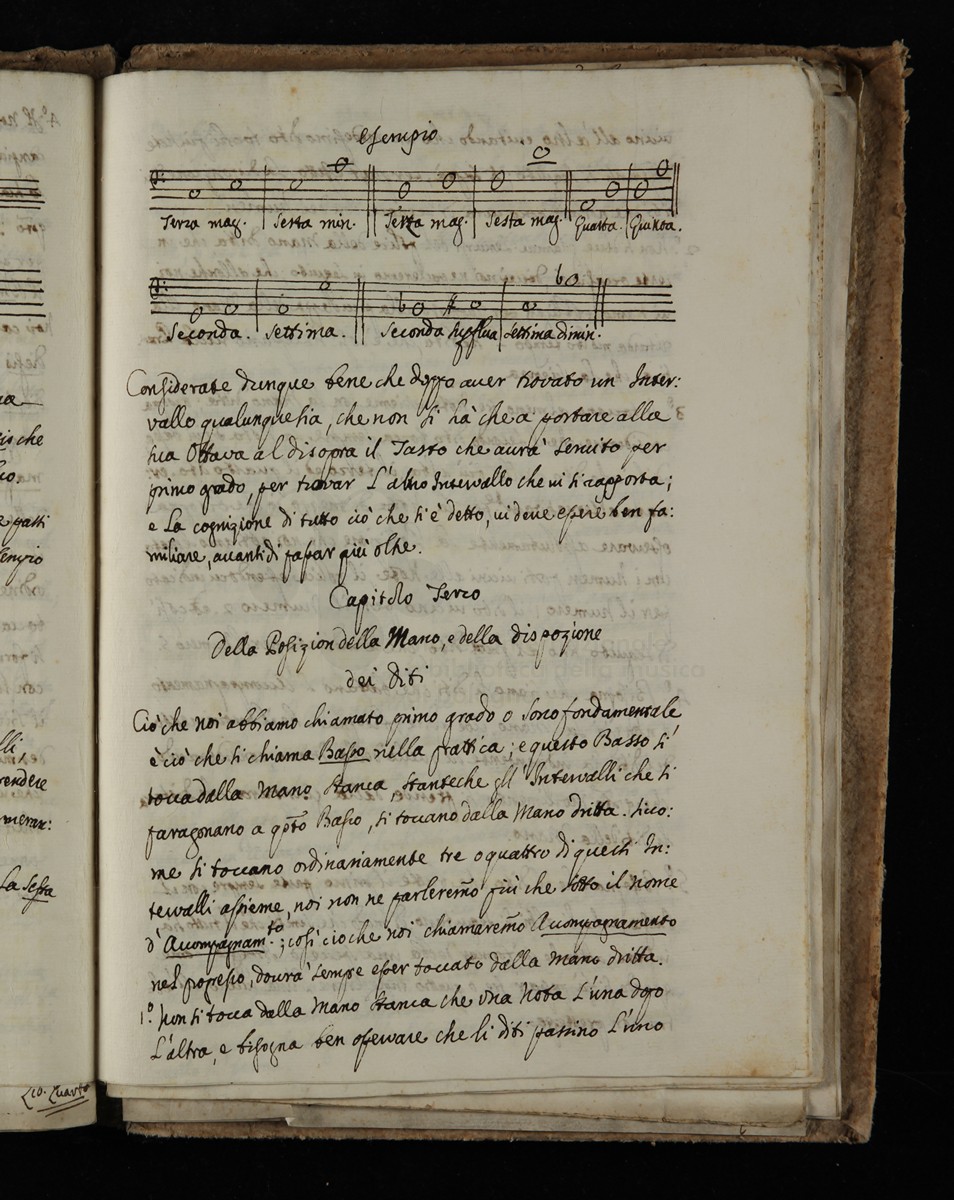 Esempio
Terza mag. Sesta min. Terza mag. Sesta mag. Quarta. Quinta.
Seconda. Settima. Seconda supflua Settima dimin.
Considerate dunque bene che doppo aver trovato un Inter:
vallo qualunque sia, che non si hà che a portare alla
sua Ottava al disopra il Tasto che aurà servito per
primo grado, per trovar L'altro Intervallo che vi si rapporta;
e La cognizione di tutto ciò che si è detto, vi deve essere ben fa:
miliare, avanti di passar più oltre.
Capitolo Terzo
Della Posizion della Mano, e della disposizione
dei Diti
Ciò che noi abbiamo chiamato primo grado o sono fondamentale
è ciò che si chiama Basso nella prattica; e questo Basso si
tocca dalla Mano stanca, stanteche gli Intervalli che si
paragonano a qpto Basso, si toccano dalla Mano dritta. Sicco:
me si toccano ordinariamente tre o quattro di questi In:
tervalli assieme, noi non ne parleremo più che sotto il nome
d'Accompagnam.to; così cio che noi chiamaremo Accompagnamento
nel progresso, dovrà sempre esser toccato dalla Mano dritta.
1.o Non si tocca dalla Mano stanca che una Nota L'una dopo
L'altra, e bisogna ben osservare che li diti passino L'uno
ua
cio che
e passi
sempio
rendere
La sesta
Lio. Quarto